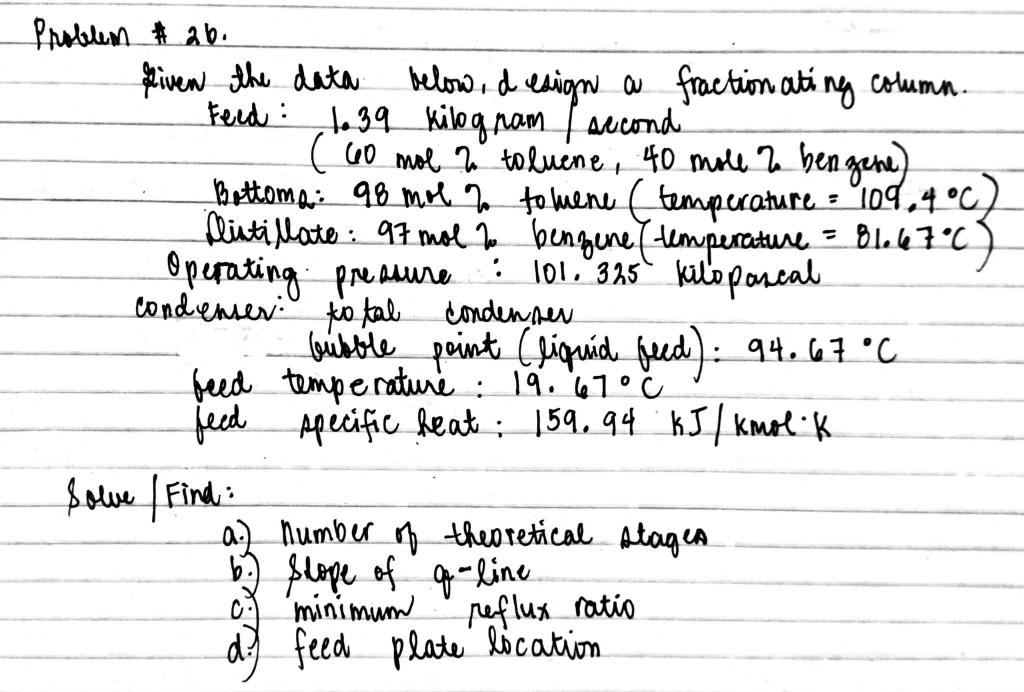 Problem # 26.
Given the data below, design a fractionating column.
Feed : 1.39 kilogram / second
( 60 mol % toluene, 40 mole % benzene)
Bottoms: 98 mol % toluene ( temperature = 109.4 °C)
Distillate : 97 mol % benzene ( temperature = 81.67 °C )
Operating pressure : 101. 325 kilopascal
condenser: total condenser
bubble point ( liquid feed ) : 94. 67 °C
feed temperature : 19. 67 °C
feed specific heat : 159. 94 kJ / kmol·K
Solve / Find :
a.) Number of theoretical stages
b.) Slope of q-line
c.) minimum reflux ratio
d.) feed plate location